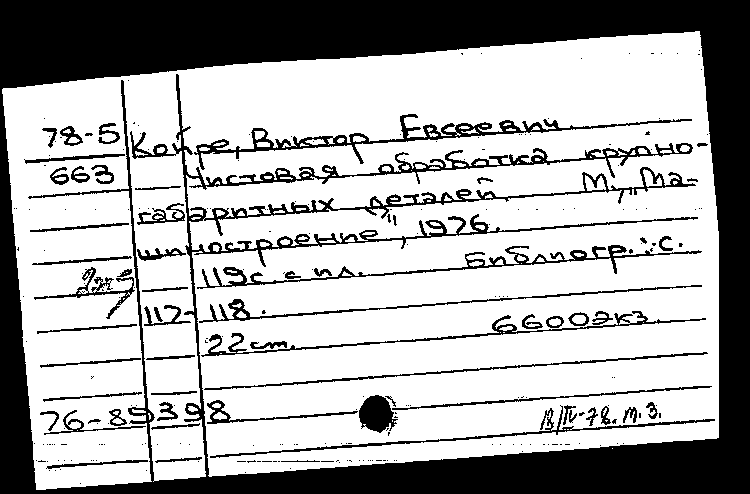 78-5 Койре, Виктор Евсеевич.
663 Чистовая обработка крупно-
габаритных деталей. М., „Ма-
шиностроение", 1976.
119с. с ил. Библиогр.: с.
117-118.
22 cm. 6600экз.
76-89398
18/IV-78. т. 3.